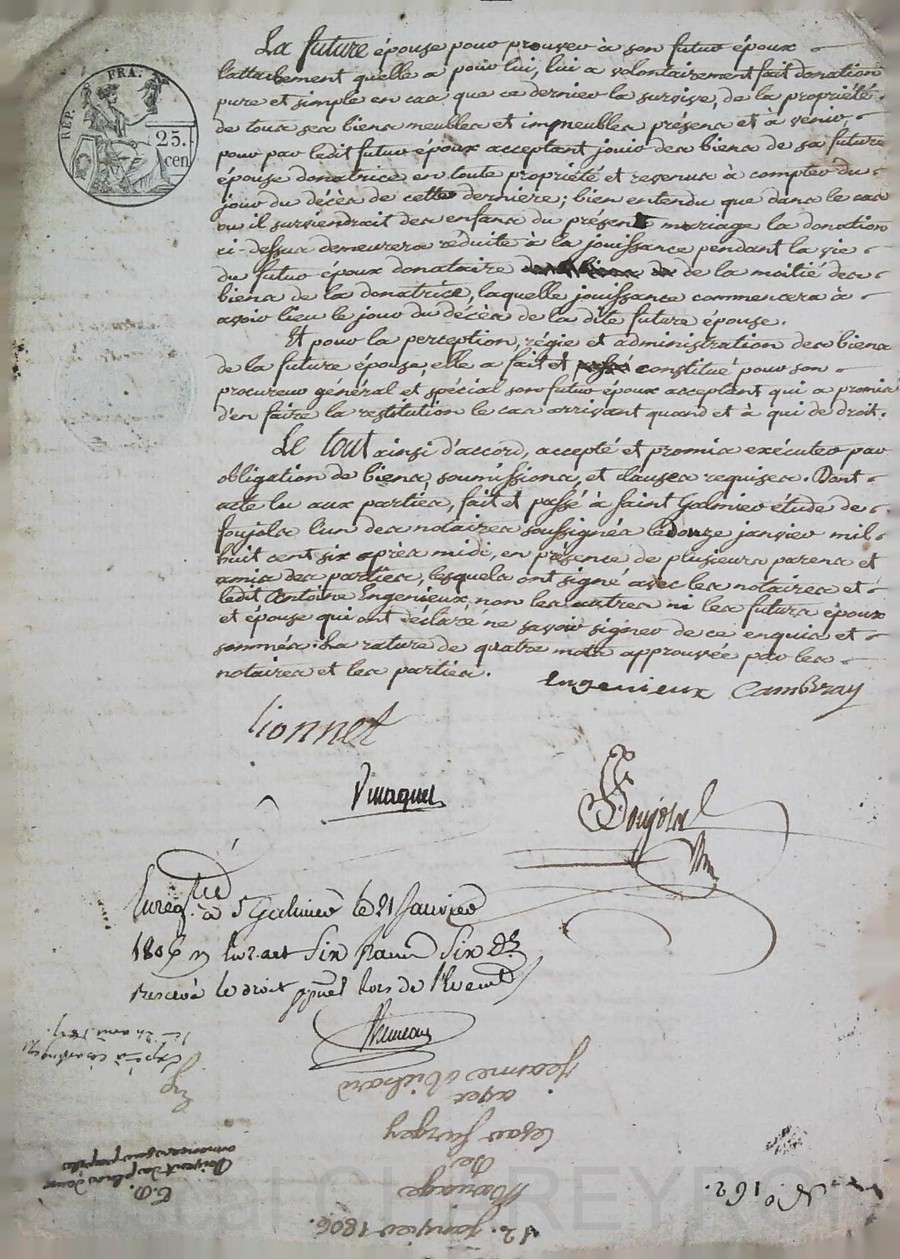 REP. FRA.
25. cen
La future épouse pour prouver à son futur époux
l'attachement quelle a pour lui, lui a volontairement fait donation
pure et simple en cas que ce dernier la survive, de la propriété
de tous ses biens meubles et immeubles présens et à venir,
pour par ledit futur époux acceptant jouir des biens de sa future
épouse donatrice en toute propriété et revenus à compter du
jour du décès de cette dernière; bien entendu que dans le cas
ou il surviendrait des enfans du présent mariage la donation
ci-dessus demeurera réduite à la jouissance pendant la vie
du futur époux donataire de la moitié des
biens de la donatrice, laquelle jouissance commencera à
avoir lieu le jour du décès de la dite future épouse.
Et pour la perception, régie et administration des biens
de la future épouse, elle a fait et constitué pour son
procureur général et spécial son futur époux acceptant qui a promis
d'en faire la restitution le cas arrivant quand et à qui de droit.
Le tout ainsi d'accord, accepté et promis exécuter par
obligation de biens, soumissions, et clauses requises. Dont
acte lu aux parties, fait et passé à Saint Galmier étude de
foujols l'un des notaires soussignés le douze janvier mil
huit cent six après midi, en présence de plusieurs parens et
amis des parties, lesquels ont signé avec les notaires et
ledit Antoine Engenieux, non les autres ni les futurs époux
et épouse qui ont déclaré ne savoir signer de ce enquis et
sommés. La rature de quatre mots approuvée par les
notaires et les parties.
Engenieux Cambray
Lionnet
Foujols
Enregtré à St Galmier le 21 Janvier
1806
reservé le droit lors de l'Evenmt
12. janvier 1806.
Mariage
De
avec
Jeanne
No 162.
Pascal CHAREYRON